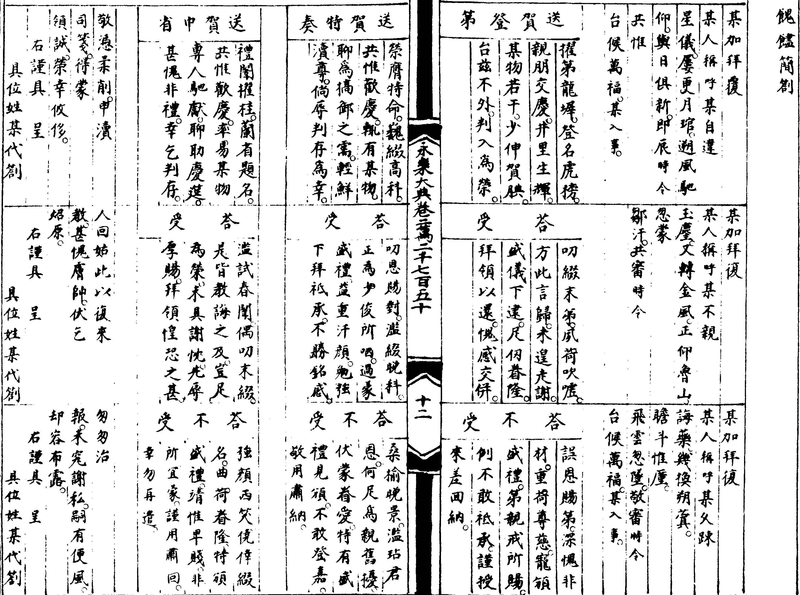 餽饋簡劄
某加拜覆
某人稱呼某自違
星儀屢更月琯遡風馳
仰與日俱新即辰時令
共惟
台候萬福某入事
送賀登第
擢第龍墀登名虎榜
親朋交慶井里生輝
某物若干少伸賀腆
台玆不外判入為榮
送賀特奏
榮膺特命巍綴高科
共惟歡慶輒有某物
聊為犒郵之需輕鮮
瀆尊倘辱判存為幸
送賀中省
禮闈擢桂蘭省題名
共惟歡慶率易某物
專人馳獻聊助慶筵
甚愧非禮幸乞判存
敬憑柔削申瀆
司箋得蒙
領誠榮幸攸侈
右謹具 呈
具位姓某代劄
某加拜復
某人稱呼某不親
玉麈又轉金風正仰魯山
忽蒙
鄒汗共審時令
答受
叨綴末第夙荷吹噓
方此言歸未遑走謝
盛儀下逮足仞眷隆
拜領以還愧感交併
答受
叨恩賜對濫綴晚科
正為少俊所哂過蒙
盛禮益重汗顏勉強
下拜祗承不勝銘感
答受
濫試春闈偶叨末綴
是皆教誨之及宜足
為榮未具謝忱先辱
厚賜拜領惶恐之甚
人回姑此以復來
教甚愧膚帥伏乞
炤原
右謹具 呈
具位姓某代劄
某加拜復
某人稱呼某久疎
誨藥幾換朔蓂
瞻斗惟厪
飛雲忽墮敬審時令
台候萬福某入事
答不受
誤恩賜第深愧非
材重荷尊慈寵頒
盛禮第親戒所賜
例不敢祗承謹授
來差回納
答不受
桑榆晚景濫玷君
恩何足為親舊擾
伏蒙眷愛特有盛
禮見頒不敢登嘉
敬用肅納
答不受
強顏西笑僥倖綴
名曲荷眷隆特頒
盛禮靖惟卑賤非
所宜蒙謹用肅回
幸勿再造
匆匆治
報未究謝私嗣有便風
却容布露
右謹具 呈
具位姓某代劄
永樂大典卷二萬二千七百五十
十二